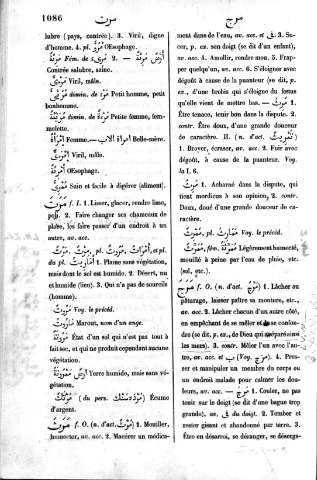 1086 موت موج
lubre (pays, contrée). 3. Viril, digne
d'homme. 4. pl. مُرُؤٌ OEsophage.
Fém. de 2. — مَرِيئَةٌ
Contrée salubre, saine.
Viril, mâle.
dimin. de مَرْءٌ Petit homme, petit
bonhomme.
dimin. de مَرْأَةٌ Petite femme, fem-
melette.
Femme.— امراة الاب Belle-mère.
Viril, mâle.
OEsophage.
Sain et facile à digérer (aliment).
مَرَتَ f. I. 1. Lisser, glacer, rendre lisse,
poli. 2. Faire changer ses chameaux de
place, les faire passer d'un endroit à un
autre, av. acc.
مَرْتٌ, pl.
du pl. 1. Plaine sans végétation,
mais dont le sol est humide. 2. Désert, nu
et humide (lieu). 3. Qui n'a pas de sourcils
(homme).
Voy. le précéd.
مَارُوتُ Marout, nom d'un ange.
État d'un sol qui n'est pas tout à
fait sec, et qui ne produit cependant aucune
végétation.
أرض Terre humide, mais sans vé-
gétation.
(du pers.) Écume
d'argent.
مَرَثَ f. O. (n. d'act. مَرْثٌ) 1. Mouiller,
humecter, av. acc. 2. Macérer un médica-
ment dans de l'eau, av. acc. et في. 3. Su-
cer, p. ex. son doigt (se dit d'un enfant),
av. acc. 4. Amollir, rendre mou. 5. Frap-
per quelqu'un, av. acc. 6. S'éloigner avec
dégoût à cause de la puanteur (se dit, p.
ex., d'une brebis qui s'éloigne du fœtus
qu'elle vient de mettre bas. — مَرِثَ 1.
Être tenace, tenir bon dans la dispute. 2.
contr. Être doux, d'une grande douceur
de caractère. II. (n. d'act. تَمْرِيثٌ)
1. Broyer, écraser, av. acc. 2. Fuir avec
dégoût, à cause de la puanteur. Voy.
la I. 6.
مَرِثٌ 1. Acharné dans la dispute, qui
tient mordicus à son opinion, 2. contr.
Doux, doué d'une grande douceur de ca-
ractère.
مِمْرَثٌ, pl. مَمَارِثُ Voy. le précéd.
fém. Légèrement humecté,
mouillé à peine par l'eau de pluie, etc.
(sol, etc.).
مَرَجَ f. O. (n. d'act. مَرْجٌ) 1. Lâcher au
pâturage, laisser paître sa monture, etc.,
av. acc. 2. Lâcher chacun d'un autre côté,
en empêchant de se mêler et de se confon-
dre (se dit, p. ex., de Dieu qui sépare ainsi
les mers). 3. contr. Mêler l'un avec l'au-
tre, av. acc. et ب (Voy. مَرَجَ). 4. Pres-
ser et manipuler un membre du corps ou
un endroit malade pour calmer les dou-
leurs, av. acc. — مَرِجَ 1. Couler, ne pas
tenir sur le doigt (se dit d'une bague trop
grande), av. في du doigt. 2. Tomber et
rester gisant et abandonné par terre. 3.
Être en désarroi, se déranger, se désorga-